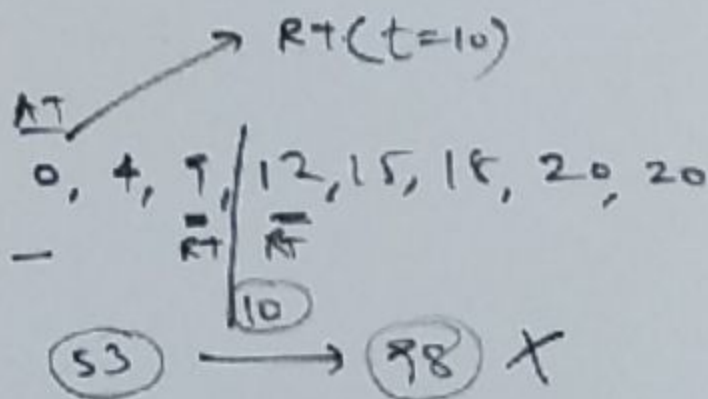 RT(t=10)
AT
0, 4, 9, 12, 15, 18, 20, 20
RT RT
10
53 98 X